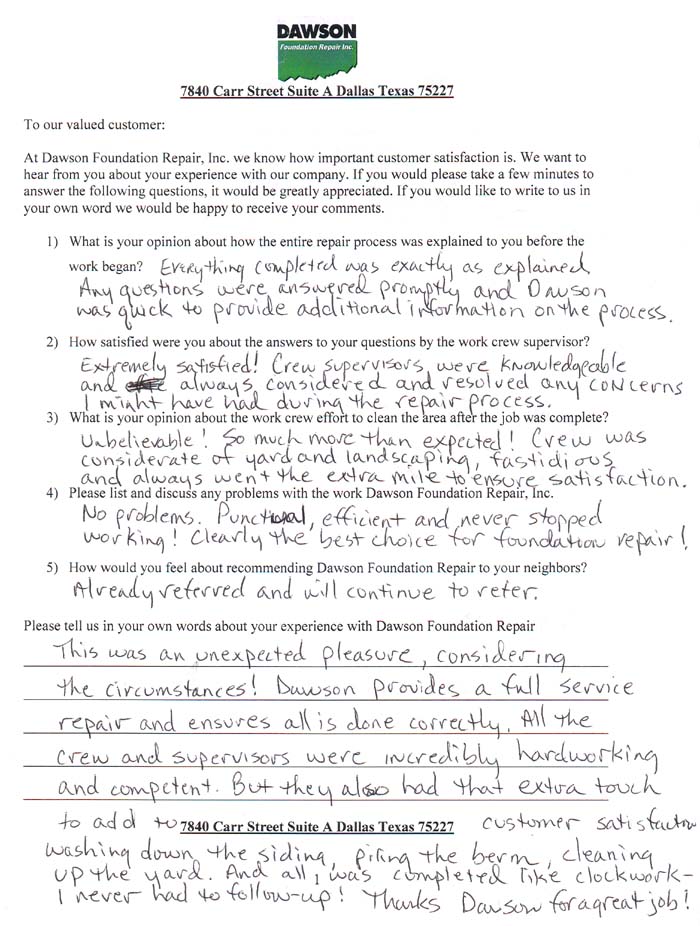 DAWSON
Foundation Repair Inc.
7840 Carr Street Suite A Dallas Texas 75227
To our valued customer:
At Dawson Foundation Repair, Inc. we know how important customer satisfaction is. We want to
hear from you about your experience with our company. If you would please take a few minutes to
answer the following questions, it would be greatly appreciated. If you would like to write to us in
your own word we would be happy to receive your comments.
1) What is your opinion about how the entire repair process was explained to you before the
work began? Everything completed was exactly as explained
Any questions were answered promptly and Dawson
was quick to provide additional information on the process.
2) How satisfied were you about the answers to your questions by the work crew supervisor?
Extremely satisfied! Crew supervisors were knowledgeable
and always considered and resolved any concerns
I might have had during the repair process.
3) What is your opinion about the work crew effort to clean the area after the job was complete?
Unbelievable! So much more than expected! Crew was
considerate of yard and landscaping, fastidious
and always went the extra mile to ensure satisfaction.
4) Please list and discuss any problems with the work Dawson Foundation Repair, Inc.
No problems. Punctual, efficient and never stopped
working! Clearly the best choice for foundation repair!
5) How would you feel about recommending Dawson Foundation Repair to your neighbors?
Already referred and will continue to refer.
Please tell us in your own words about your experience with Dawson Foundation Repair
This was an unexpected pleasure, considering
the circumstances! Dawson provides a full service
repair and ensures all is done correctly. All the
crew and supervisors were incredibly hardworking
and competent. But they also had that extra touch
to add to 7840 Carr Street Suite A Dallas Texas 75227 customer satisfaction
washing down the siding, the berm, cleaning
up the yard. And all, was completed like clockwork-
I never had to follow-up! Thanks Dawson for a great job!